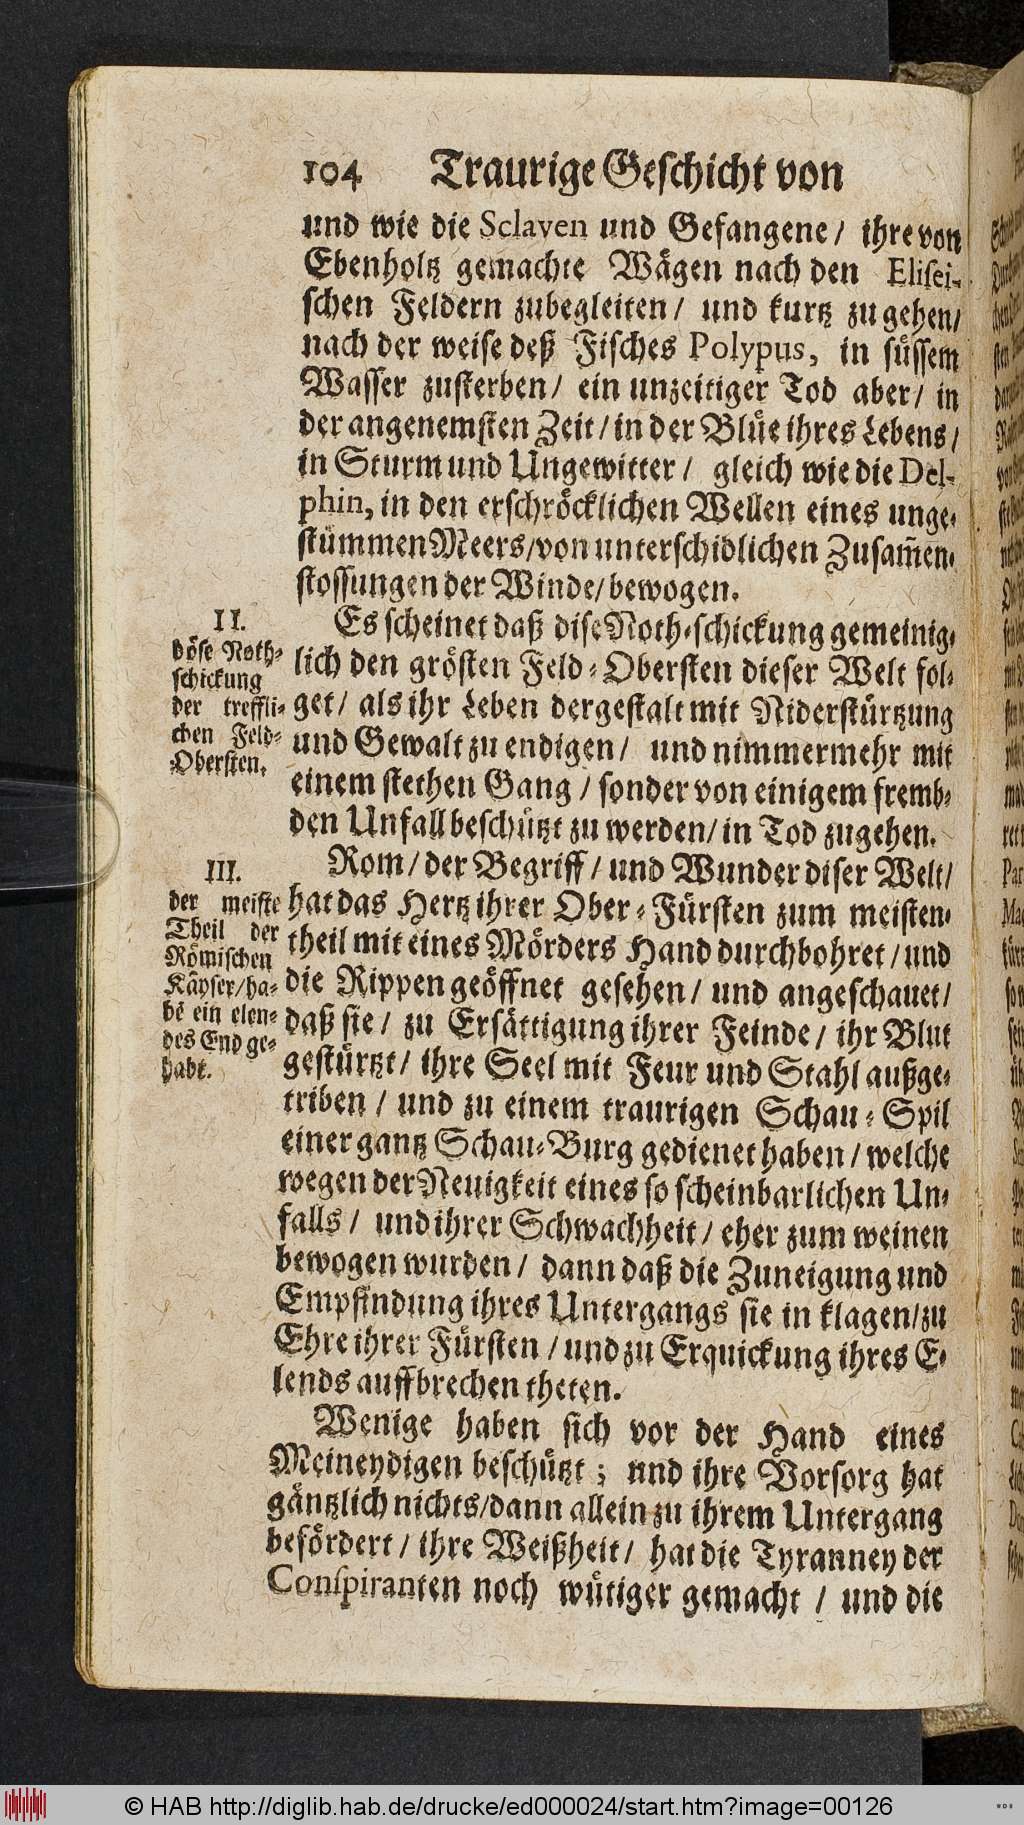 104 Traurige Geschicht von
und wie die Sclaven und Gefangene / ihre von
Ebenholtz gemachte Wägen nach den Elisei-
schen Feldern zubegleiten / und kurtz zu gehen /
nach der weise deß Fisches Polypus, in süssem
Wasser zusterben / ein unzeitiger Tod aber / in
der angenemsten Zeit / in der Blüe ihres Lebens /
in Sturm und Ungewitter / gleich wie die Del-
phin, in den erschröcklichen Wellen eines unge-
stümmen Meers / von unterschidlichen Zusam̄en-
stossungen der Winde / bewogen.
II.
böse Noth-
schickung
der treffli-
chen Feld-
Obersten.
Es scheinet daß dise Noth-schickung gemeinig-
lich den grösten Feld-Obersten dieser Welt fol-
get / als ihr Leben dergestalt mit Niderstürtzung
und Gewalt zu endigen / und nimmermehr mit
einem stethen Gang / sonder von einigem fremb-
den Unfall beschützt zu werden / in Tod zugehen.
III.
der meiste
Theil der
Römischen
Käyser / ha-
bē ein elen-
des End ge-
habt.
Rom / der Begriff / und Wunder diser Welt /
hat das Hertz ihrer Ober-Fürsten zum meisten-
theil mit eines Mörders Hand durchbohret / und
die Rippen geöffnet gesehen / und angeschauet /
daß sie / zu Ersättigung ihrer Feinde / ihr Blut
gestürtzt / ihre Seel mit Feur und Stahl außge-
triben / und zu einem traurigen Schau-Spil
einer gantz Schau-Burg gedienet haben / welche
wegen der Neuigkeit eines so scheinbarlichen Un-
falls / und ihrer Schwachheit / eher zum weinen
bewogen wurden / dann daß die Zuneigung und
Empfindung ihres Untergangs sie in klagen / zu
Ehre ihrer Fürsten / und zu Erquickung ihres E-
lends auffbrechen theten.
Wenige haben sich vor der Hand eines
Meineydigen beschützt ; und ihre Vorsorg hat
gäntzlich nichts / dann allein zu ihrem Untergang
befördert / ihre Weißheit / hat die Tyranney der
Conspiranten noch wütiger gemacht / und die
© HAB http://diglib.hab.de/drucke/ed000024/start.htm?image=00126